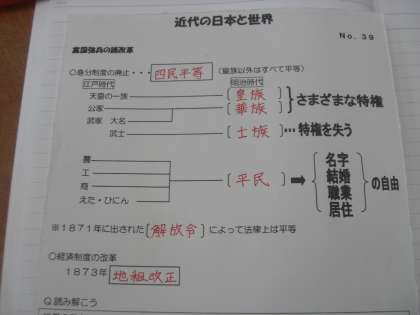 近代の日本と世界
No. 39
富国強兵の諸改革
○身分制度の廃止・・・四民平等 (皇族以外はすべて平等)
江戸時代 明治時代
天皇の一族 〔皇族〕
公家 〔華族〕 さまざまな特権
武家 大名
武士 〔士族〕…特権を失う
農
工
商 〔平民〕➡ 名字 結婚 職業 居住 の自由
えた・ひにん
※1871年に出された〔解放令〕によって法律上は平等
○経済制度の改革
1873年 地租改正
Q読み解こう